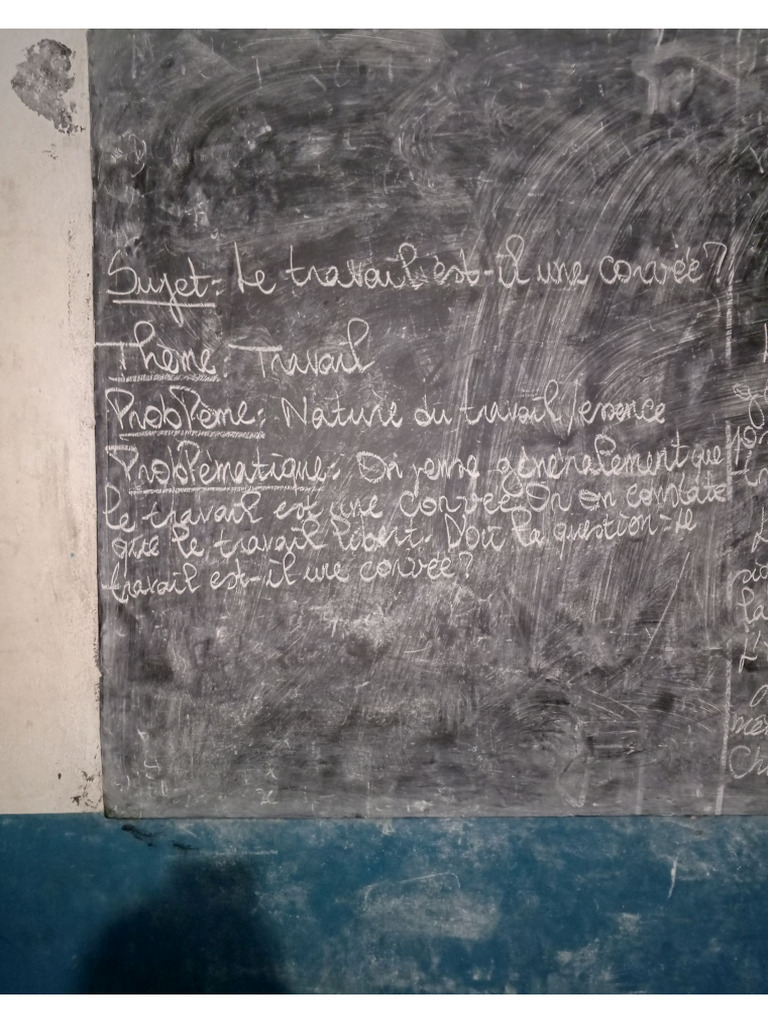 Sujet: Le travail est-il une corvée?
Thème: Travail
Problème: Nature du travail/essence
Problématique: On pense généralement que
le travail est une corvée. Or on constate
que le travail libert. D'où la question: le
travail est-il une corvée?